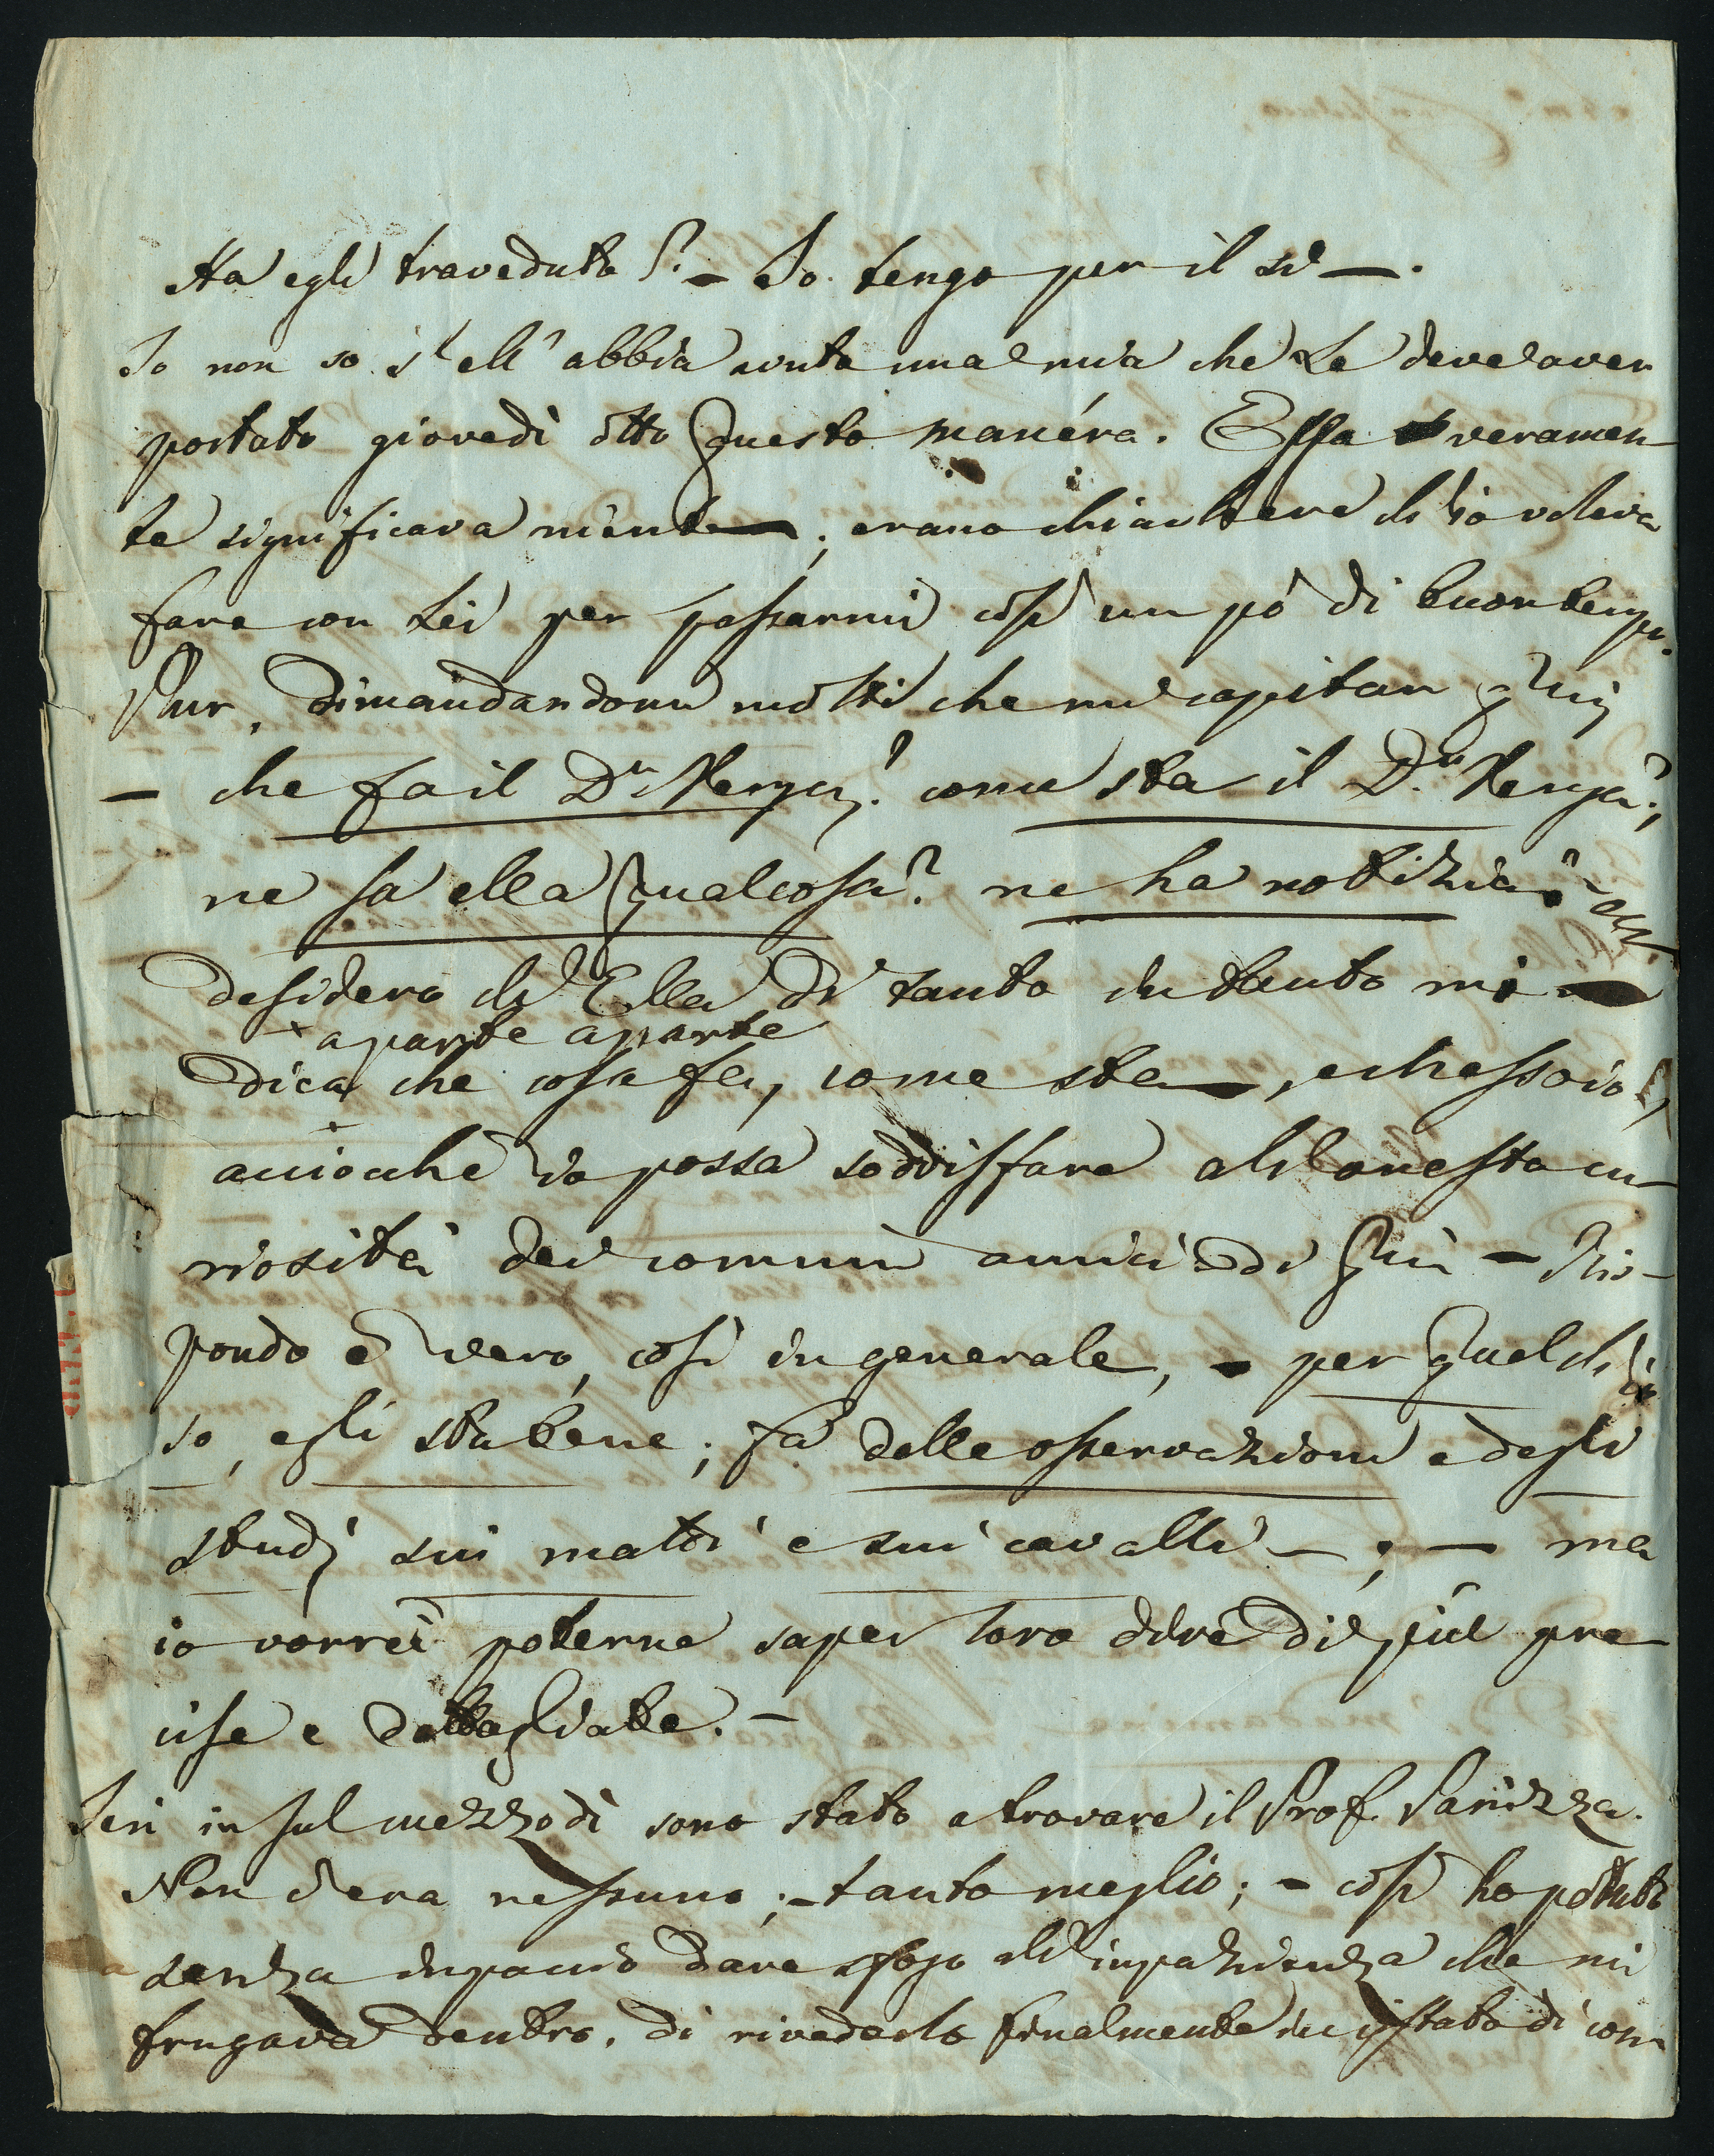 Ha egli traveduto? – Io tengo per il sì –.
Io non so s'ell' abbia avuta una mia che Le deve aver
portato giovedì otto questo manéra. Essa veramen
te significava niente; erano chiacchere ch'io voleva
fare con Lei per passarmi così un pò di buontempo.
Pur, dimandandomi molti che mi capitan quì
– che fa il Dr Verga? come sta il Dr. Verga?,
ne sa ella qualcosa? ne ha notizia? –
desidero ch' Ella di tanto in tanto mi
× aparte aparte
dica che cosa fa, come sta,
acciocchè io possa soddisfare all'onesta cu-
riosità dei comuni amici di quì – Ris-
pondo è vero, così in generale, – per quel ch'io
so, egli sta bene; fa delle osservazioni e degli
studj sui matti e sui cavalli –; – ma
io vorrei poterne saper loro dire di più pre
cise e dettagliate. –
Ieri in sul mezzodì sono stato a trovare il Prof. Panizza.
Non v'era nessuno; – tanto meglio; – così ho potuto
senza impaccio dare sfogo all'impazienza che mi
frugava dentro, di rivederlo finalmente in istato di con